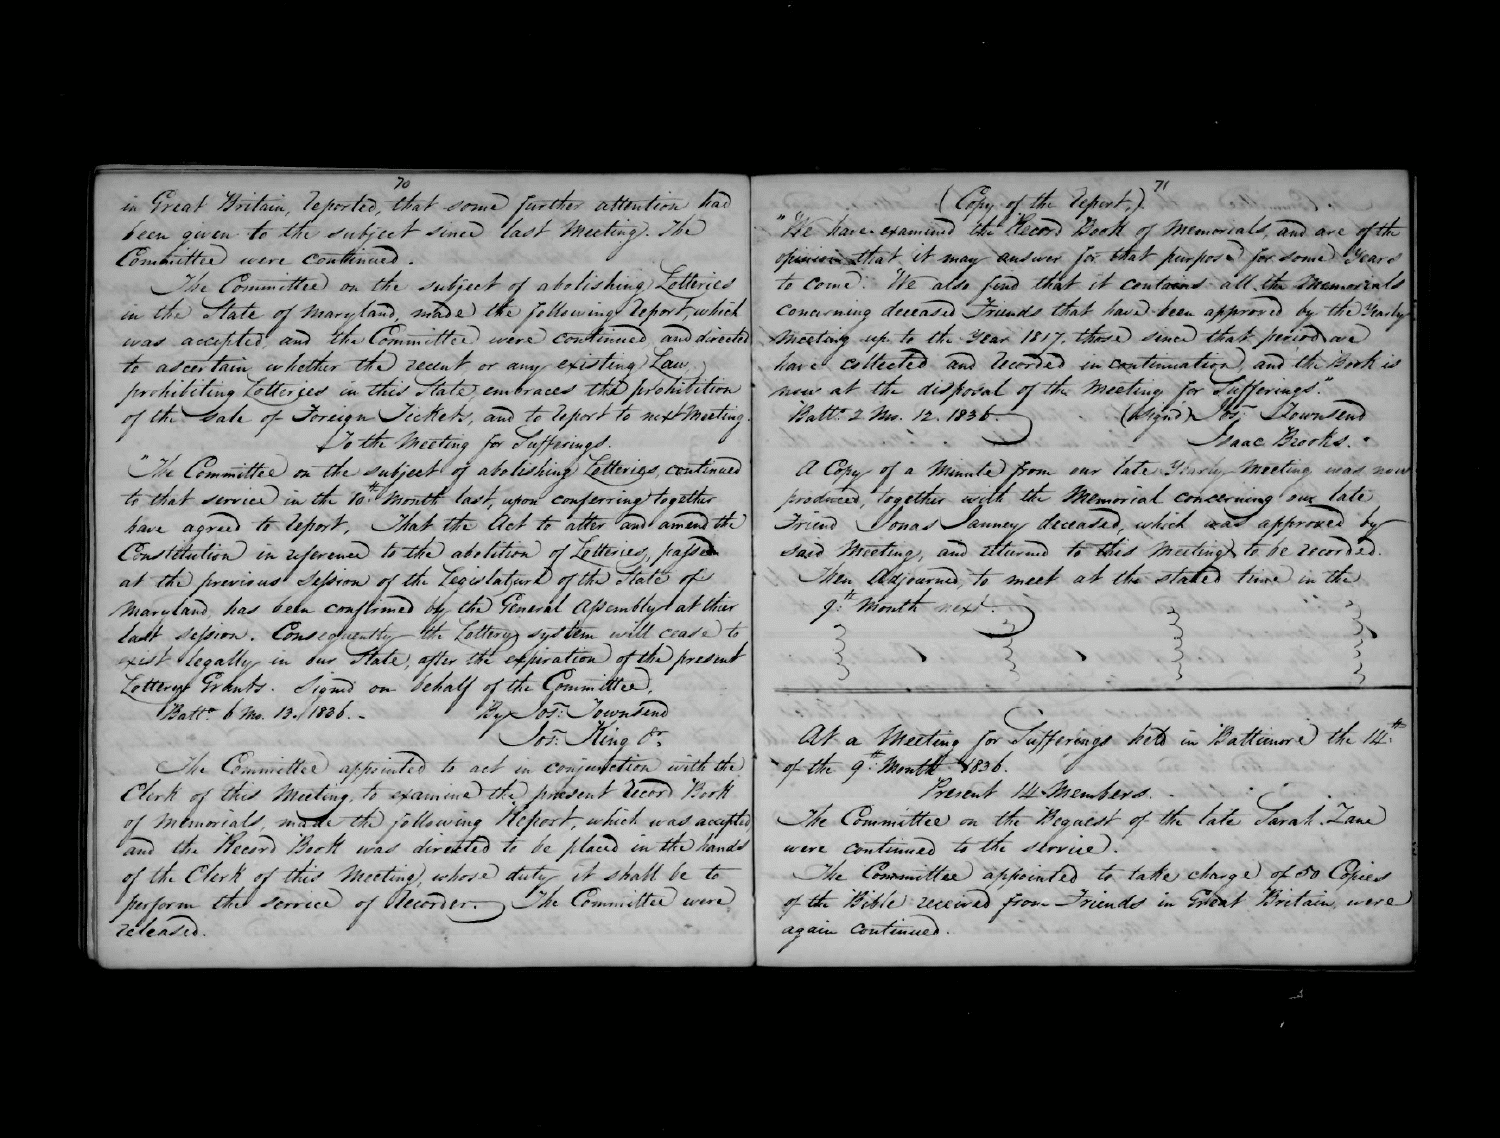 70
in Great Britain, reported, that some further attention had
been given to the subject since last Meeting. The
Committee were continued.
The Committee on the subject of abolishing Lotteries
in the State of Maryland, made the following report, which
was accepted, and the Committee were continued, and directed
to ascertain whether the recent or any existing Law,
prohibiting Lotteries in this State, embraces the prohibition
of the Sale of Foreign Tickets, and to report to next Meeting.
To the Meeting for Sufferings.
"The Committee on the subject of abolishing Lotteries, continued
to that service in the 10th Month last, upon conferring together
have agreed to report, That the Act to alter and amend the
Constitution in reference to the abolition of Lotteries, passed
at the previous Session of the Legislature of the State of
Maryland, has been confirmed by the General Assembly at their
last session. Consequently the Lottery system will cease to
exist legally in our State, after the expiration of the present
Lottery Grants. Signed on behalf of the Committee,
Balto. 6 Mo. 13. 1836. By Jos: Townsend
Jos: King Jr.
The Committee appointed to act in conjunction with the
Clerk of this Meeting, to examine the present record Book
of Memorials, made the following Report, which was accepted,
and the Record Book was directed to be placed in the hands
of the Clerk of this Meeting, whose duty it shall be to
perform the service of Recorder. The Committee were
released.
71
(Copy of the report,)
"We have examined the Record Book of Memorials, and are of the
opinion that it may answer for that purpose for some Years
to come. We also find that it contains all the Memorials
concerning deceased Friends that have been approved by the Yearly
Meeting up to the Year 1817, those since that period we
have collected and recorded in continuation, and the Book is
now at the disposal of the Meeting for Sufferings."
Balto. 2 Mo. 12. 1836. (Signd) Jos: Townsend
Isaac Brooks.
A Copy of a Minute from our late Yearly Meeting was now
produced, together with the Memorial concerning our late
Friend Jonas Janney deceased, which was approved by
said Meeting, and returned to this Meeting to be recorded.
Then Adjourned, to meet at the stated time in the
9th Month next.
At a Meeting for Sufferings held in Baltimore the 14th
of the 9th Month 1836.
Present 14 Members.
The Committee on the Bequest of the late Sarah Zane
were continued to the service.
The Committee appointed to take charge of 50 Copies
of the Bible received from Friends in Great Britain, were
again continued.